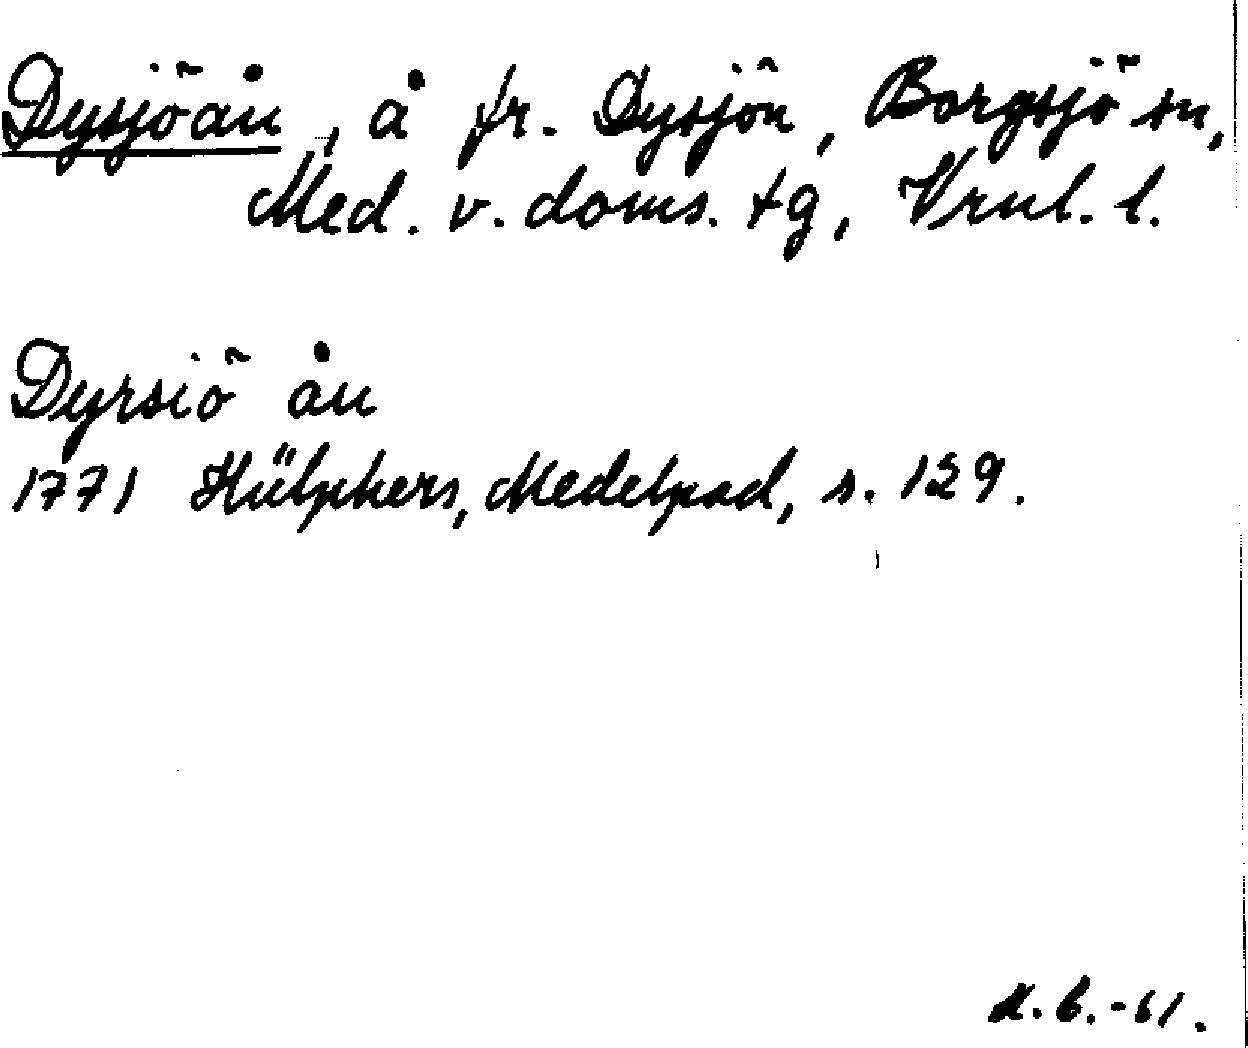 Dysjöån, å fr. Dysjön, Borgsjö sn,
Med. v. doms. tg, Vrnl. l.
Dyrsiö ån
1771 Hülphers, Medelpad, s. 129.
M.B.-61.